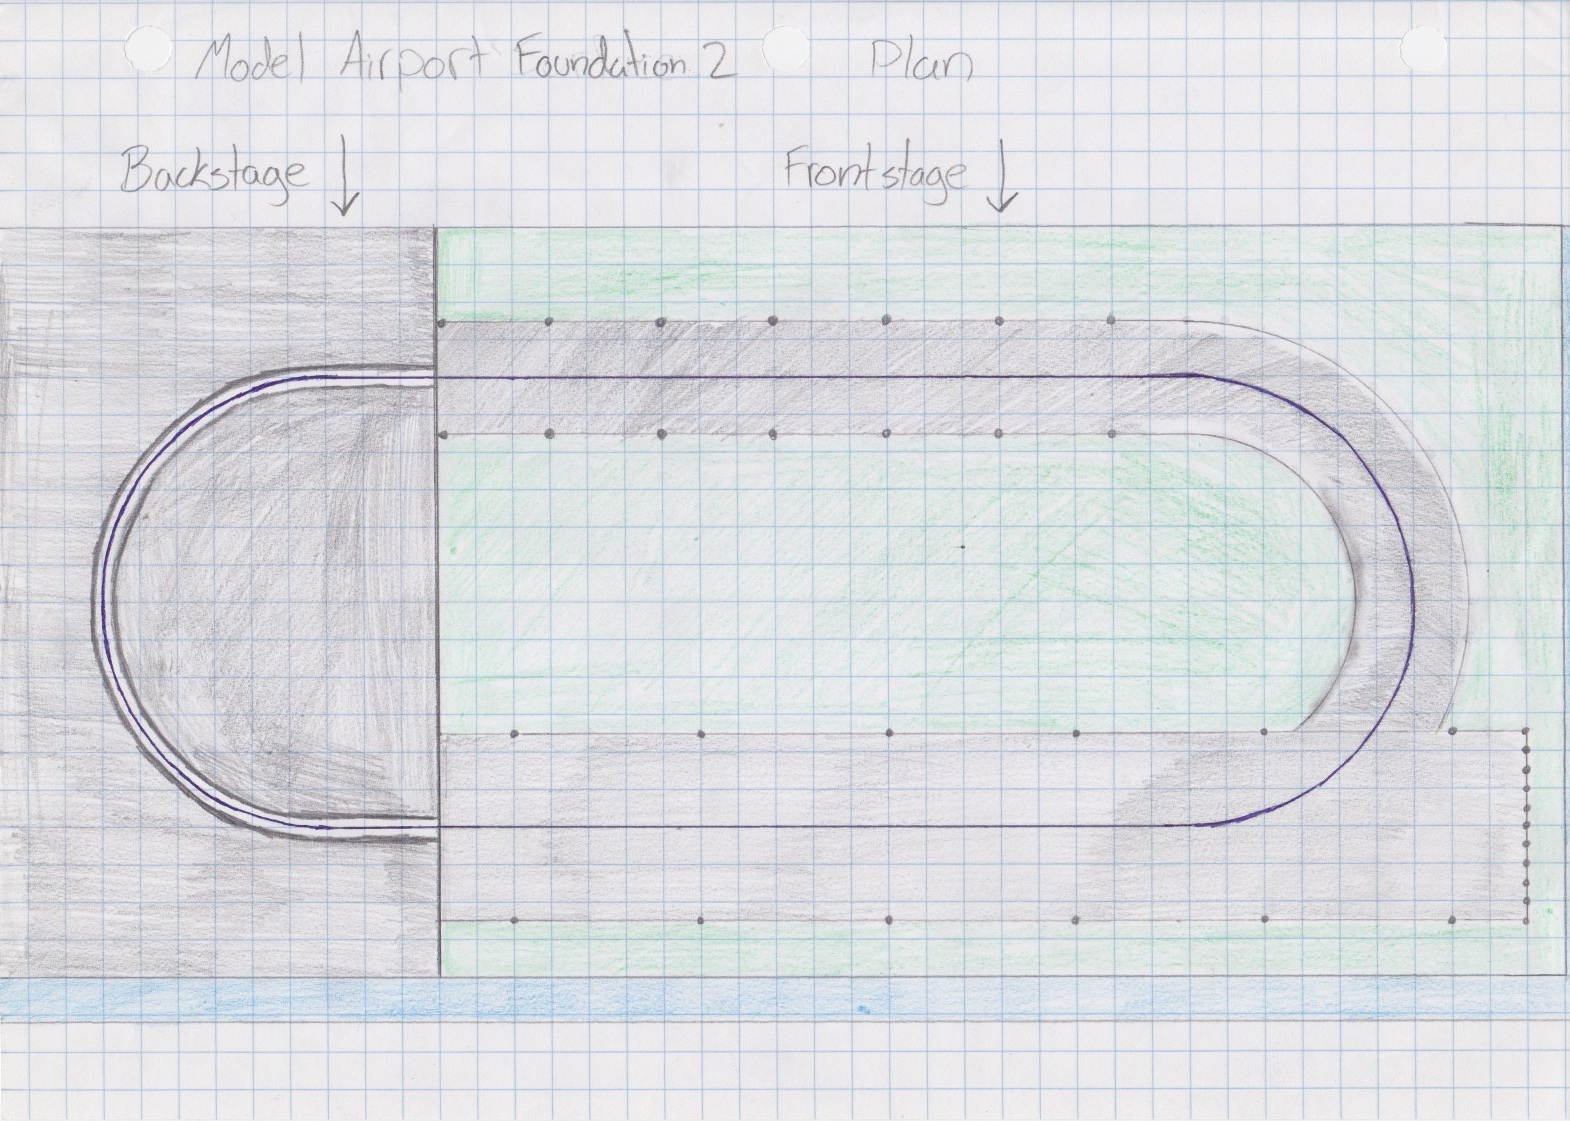 Model Airport Foundation 2 Plan
Backstage
Frontstage